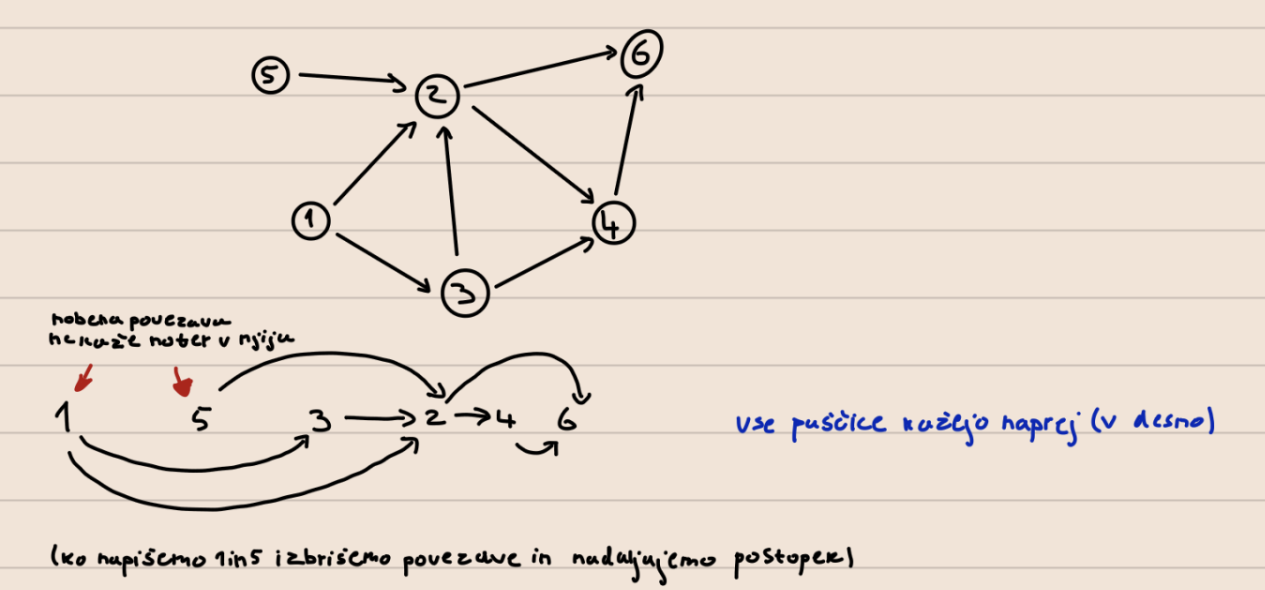 5
6
2
1
4
3
nobena povezava
ne kaže noter v njiju
1 5 3 2 4 6
vse puščice kažejo naprej (v desno)
(ko napišemo 1 in 5 izbrišemo povezave in nadaljujemo postopek)